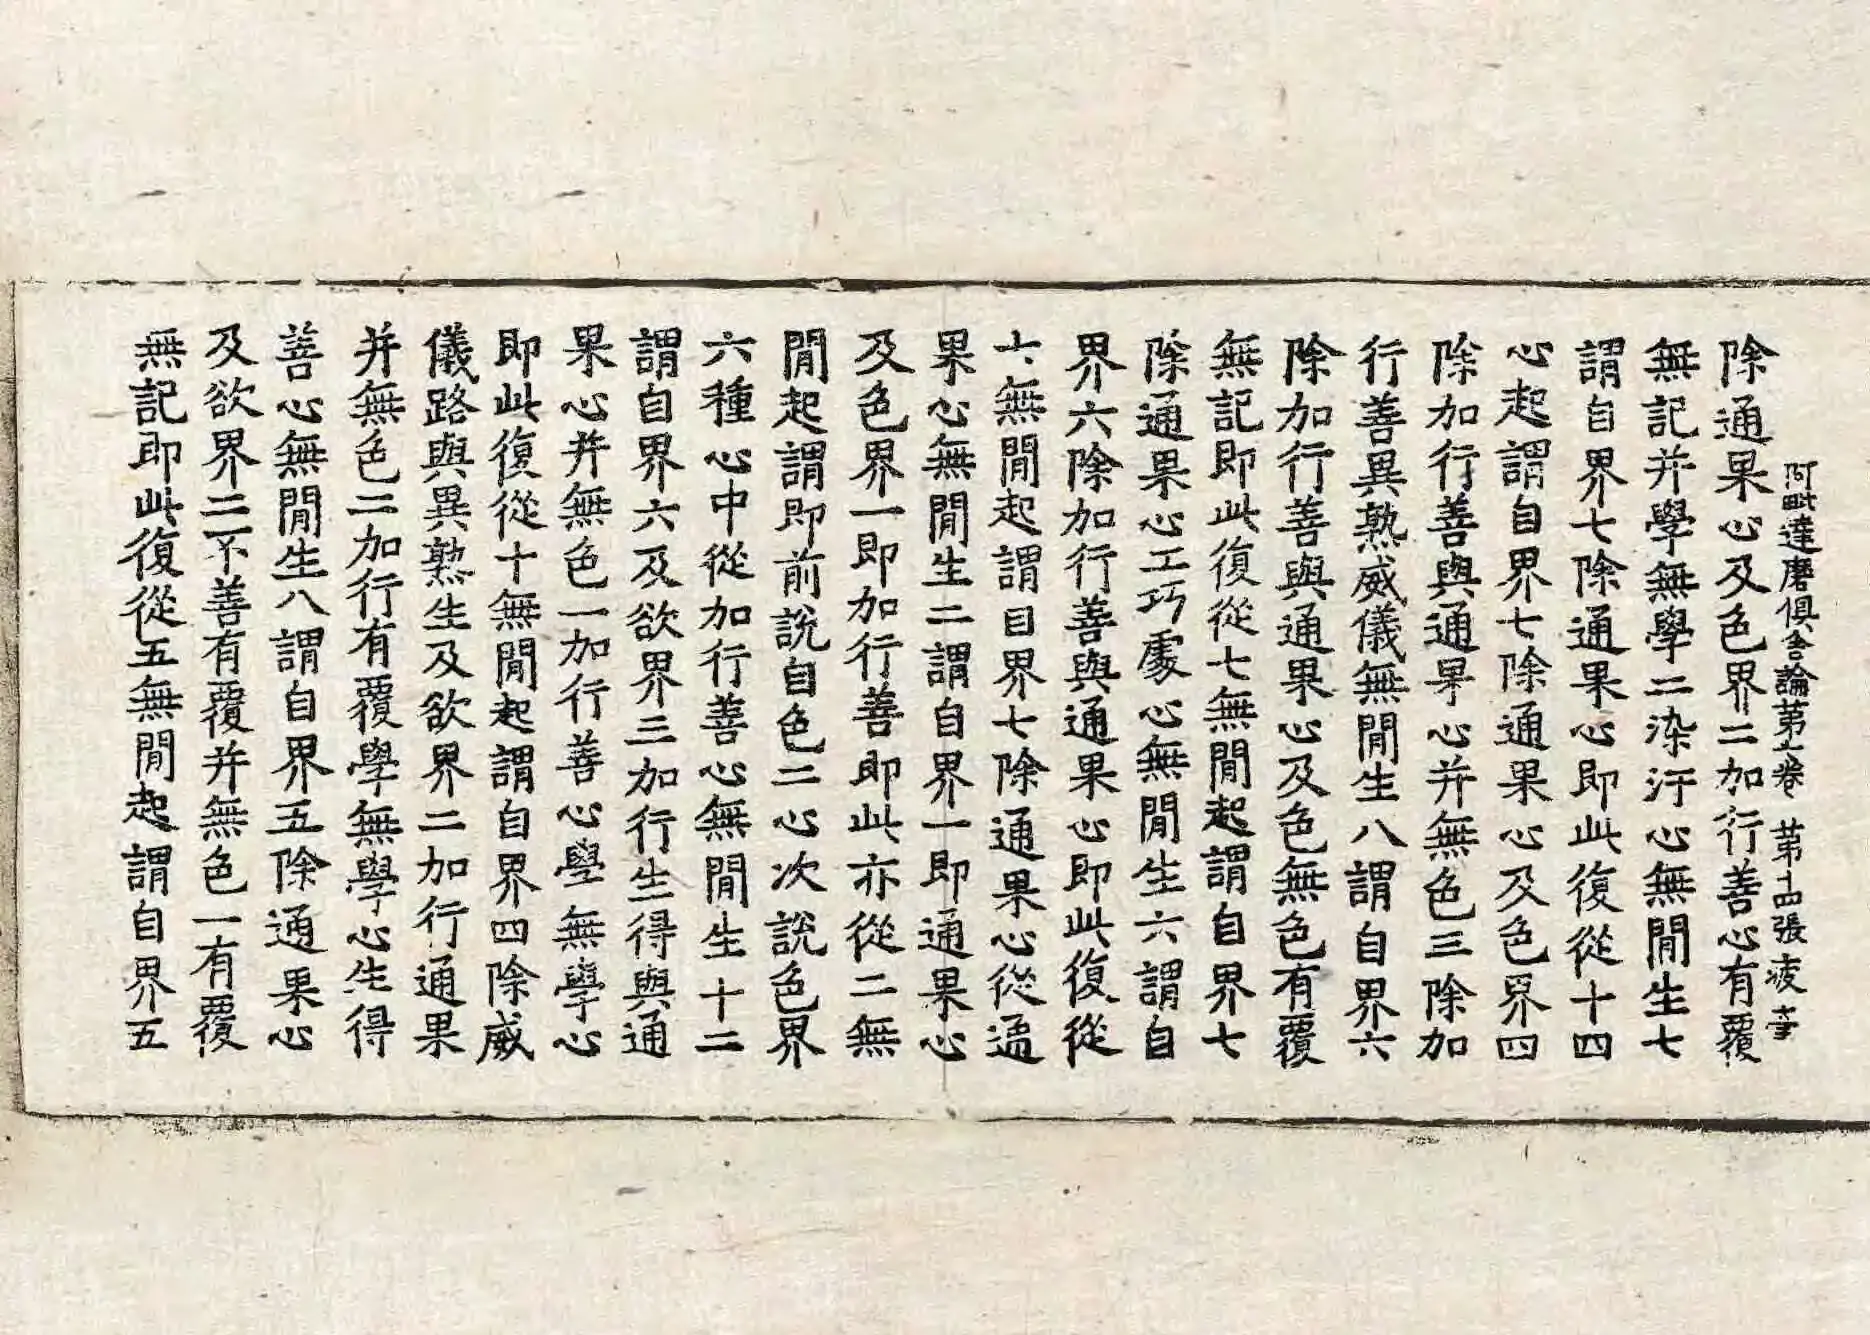 阿毗達磨俱舍論第七卷 第十四張 疲
除通果心及色界二加行善心有覆
無記并學無學二染汙心無閒生七
謂自界七除通果心即此復從十四
心起謂自界七除通果心及色界四
除加行善與通果心并無色三除加
行善異熟威儀無閒生八謂自界六
除加行善與通果心及色無色有覆
無記即此復從七無閒起謂自界七
除通果心工巧處心無閒生六謂自
界六除加行善與通果心即此復從
七無閒起謂自界七除通果心從通
果心無閒生二謂自界一即通果心
及色界一即加行善即此亦從二無
閒起謂即前說自色二心次說色界
六種心中從加行善心無閒生十二
謂自界六及欲界三加行生得與通
果心并無色一加行善心學無學心
即此復從十無閒起謂自界四除威
儀路與異熟生及欲界二加行通果
并無色二加行有覆學無學心生得
善心無閒生八謂自界五除通果心
及欲界二不善有覆并無色一有覆
無記即此復從五無閒起謂自界五